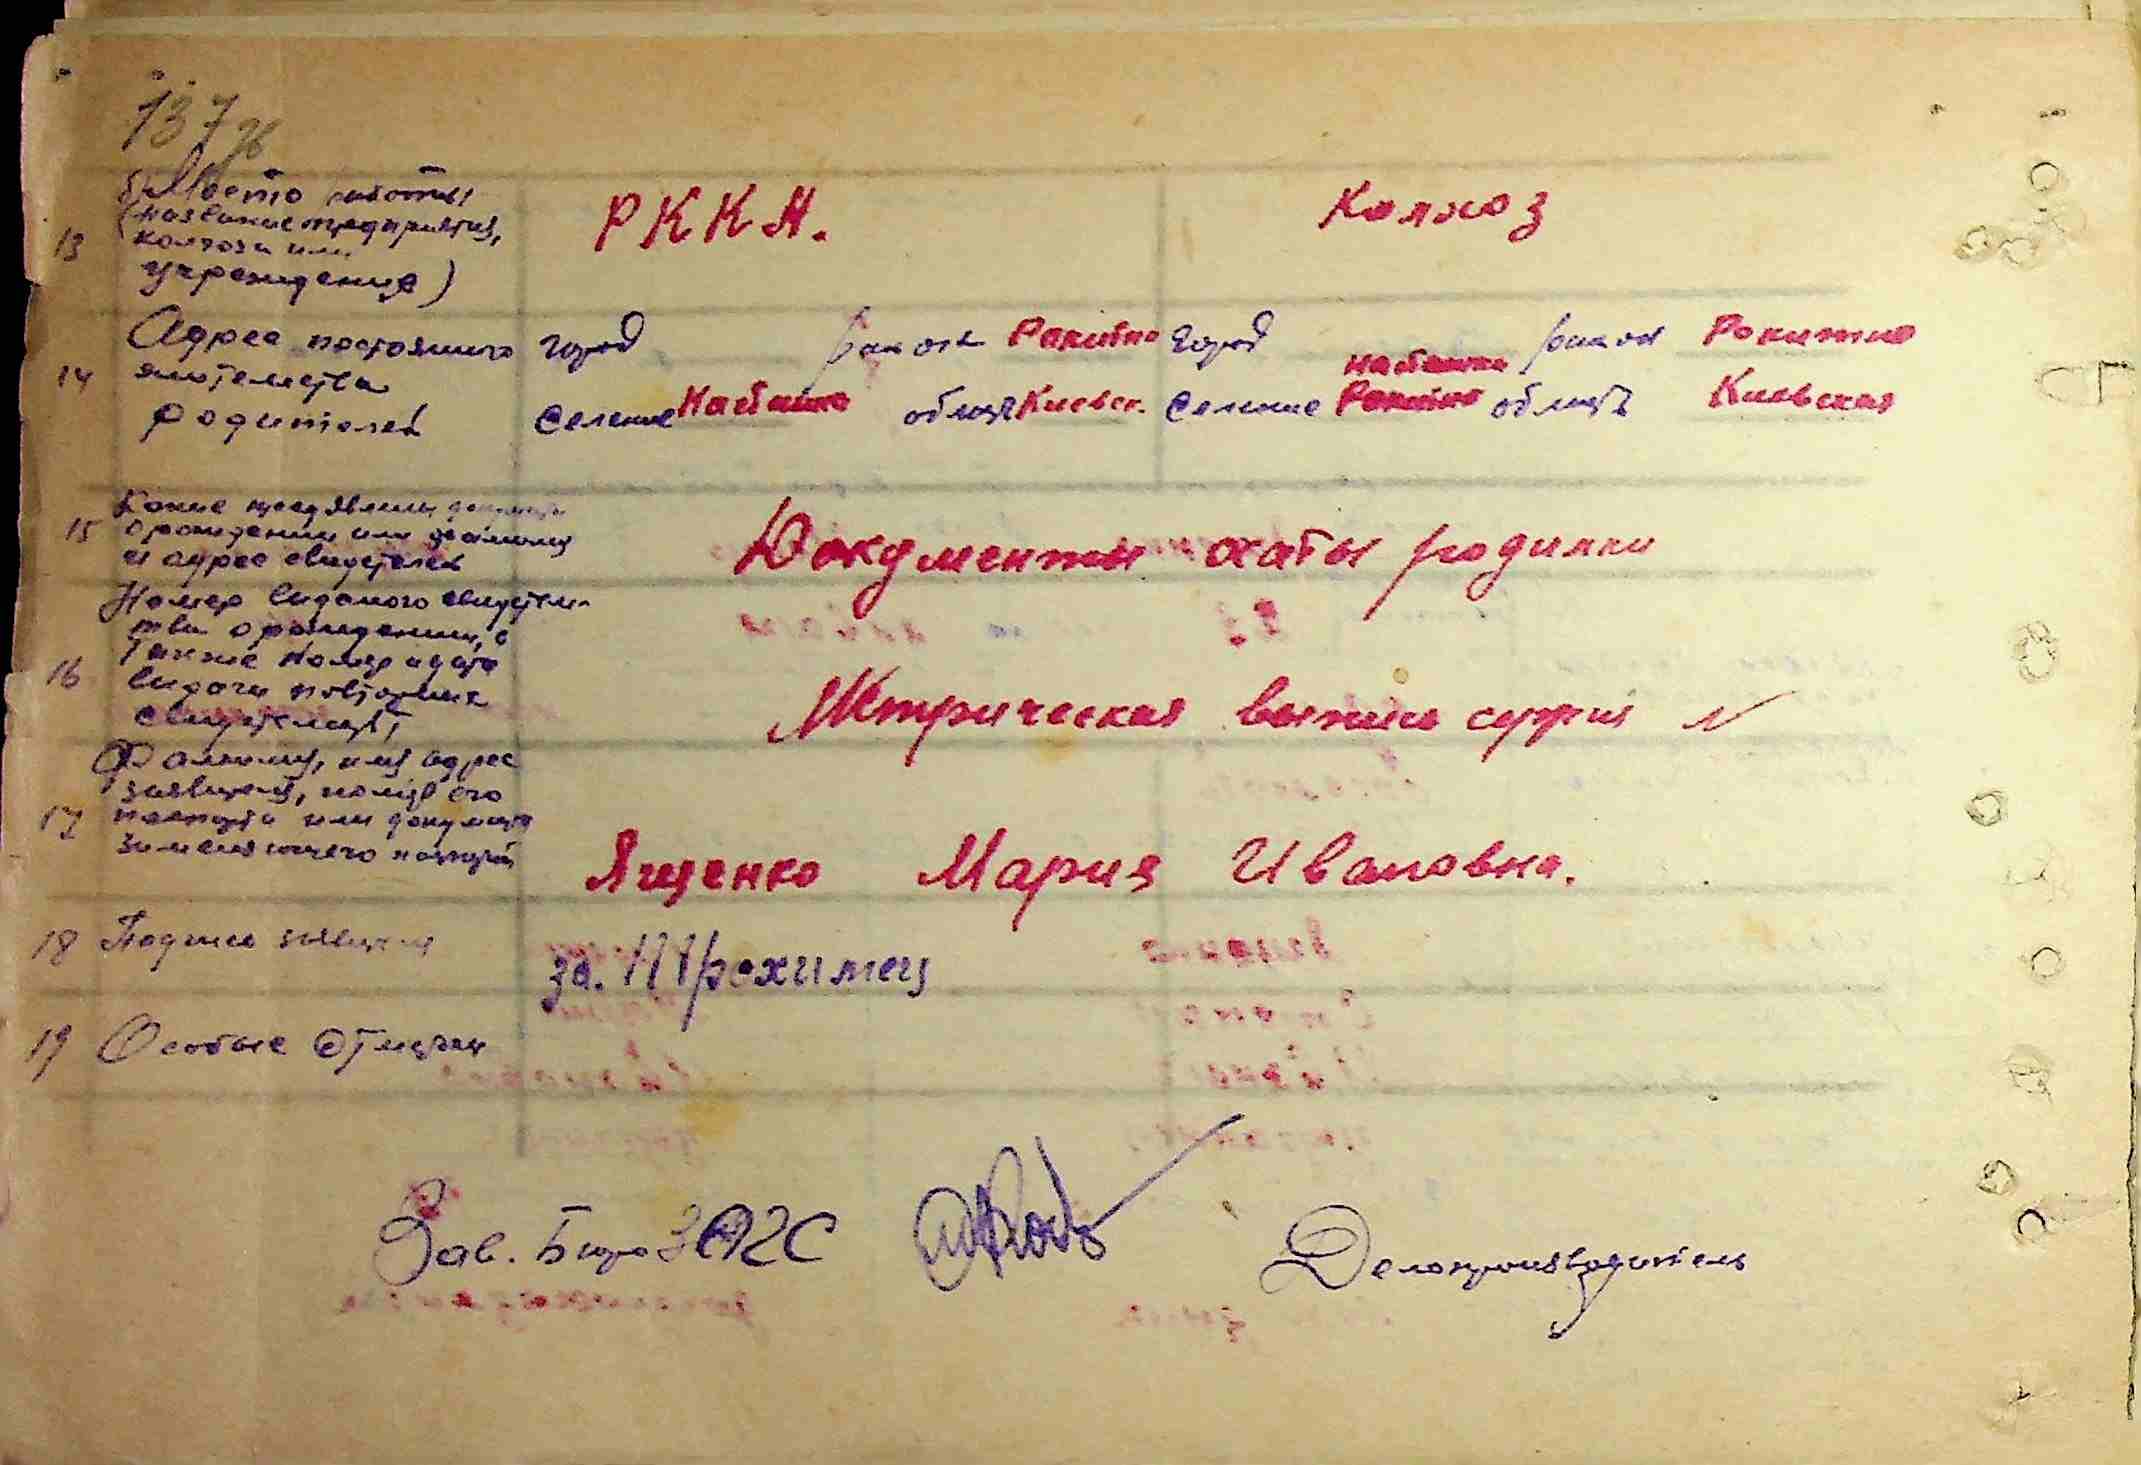 137 зв
б) Место работы
(название предприятия,
13 колхоза или
учреждения)
Р К К А.
Колхоз
Адрес постоянного
14 жительства
родителей
город район Ракитно
селение Насташка область Киевск.
город район Рокитно
Насташка
селение Ракитно область Киевская
Какие предъявлены документы
15 о рождении или фамилия
и адрес свидетелей
Документы хаты родилки
Номер выданого свидетель-
тва о рождении, а
16 также номер и дата
выдачи повторных
свидетельств
Метрическая выпись серия №
Фамилия, имя адрес
заявителя, номер его
17 паспорта или документа
заменяющего паспорт
Ященко Мария Ивановна.
18 Подпись заявителя
за.
19 Особые отметки
Зав. Бюро ЗАГС
Делопроизводитель